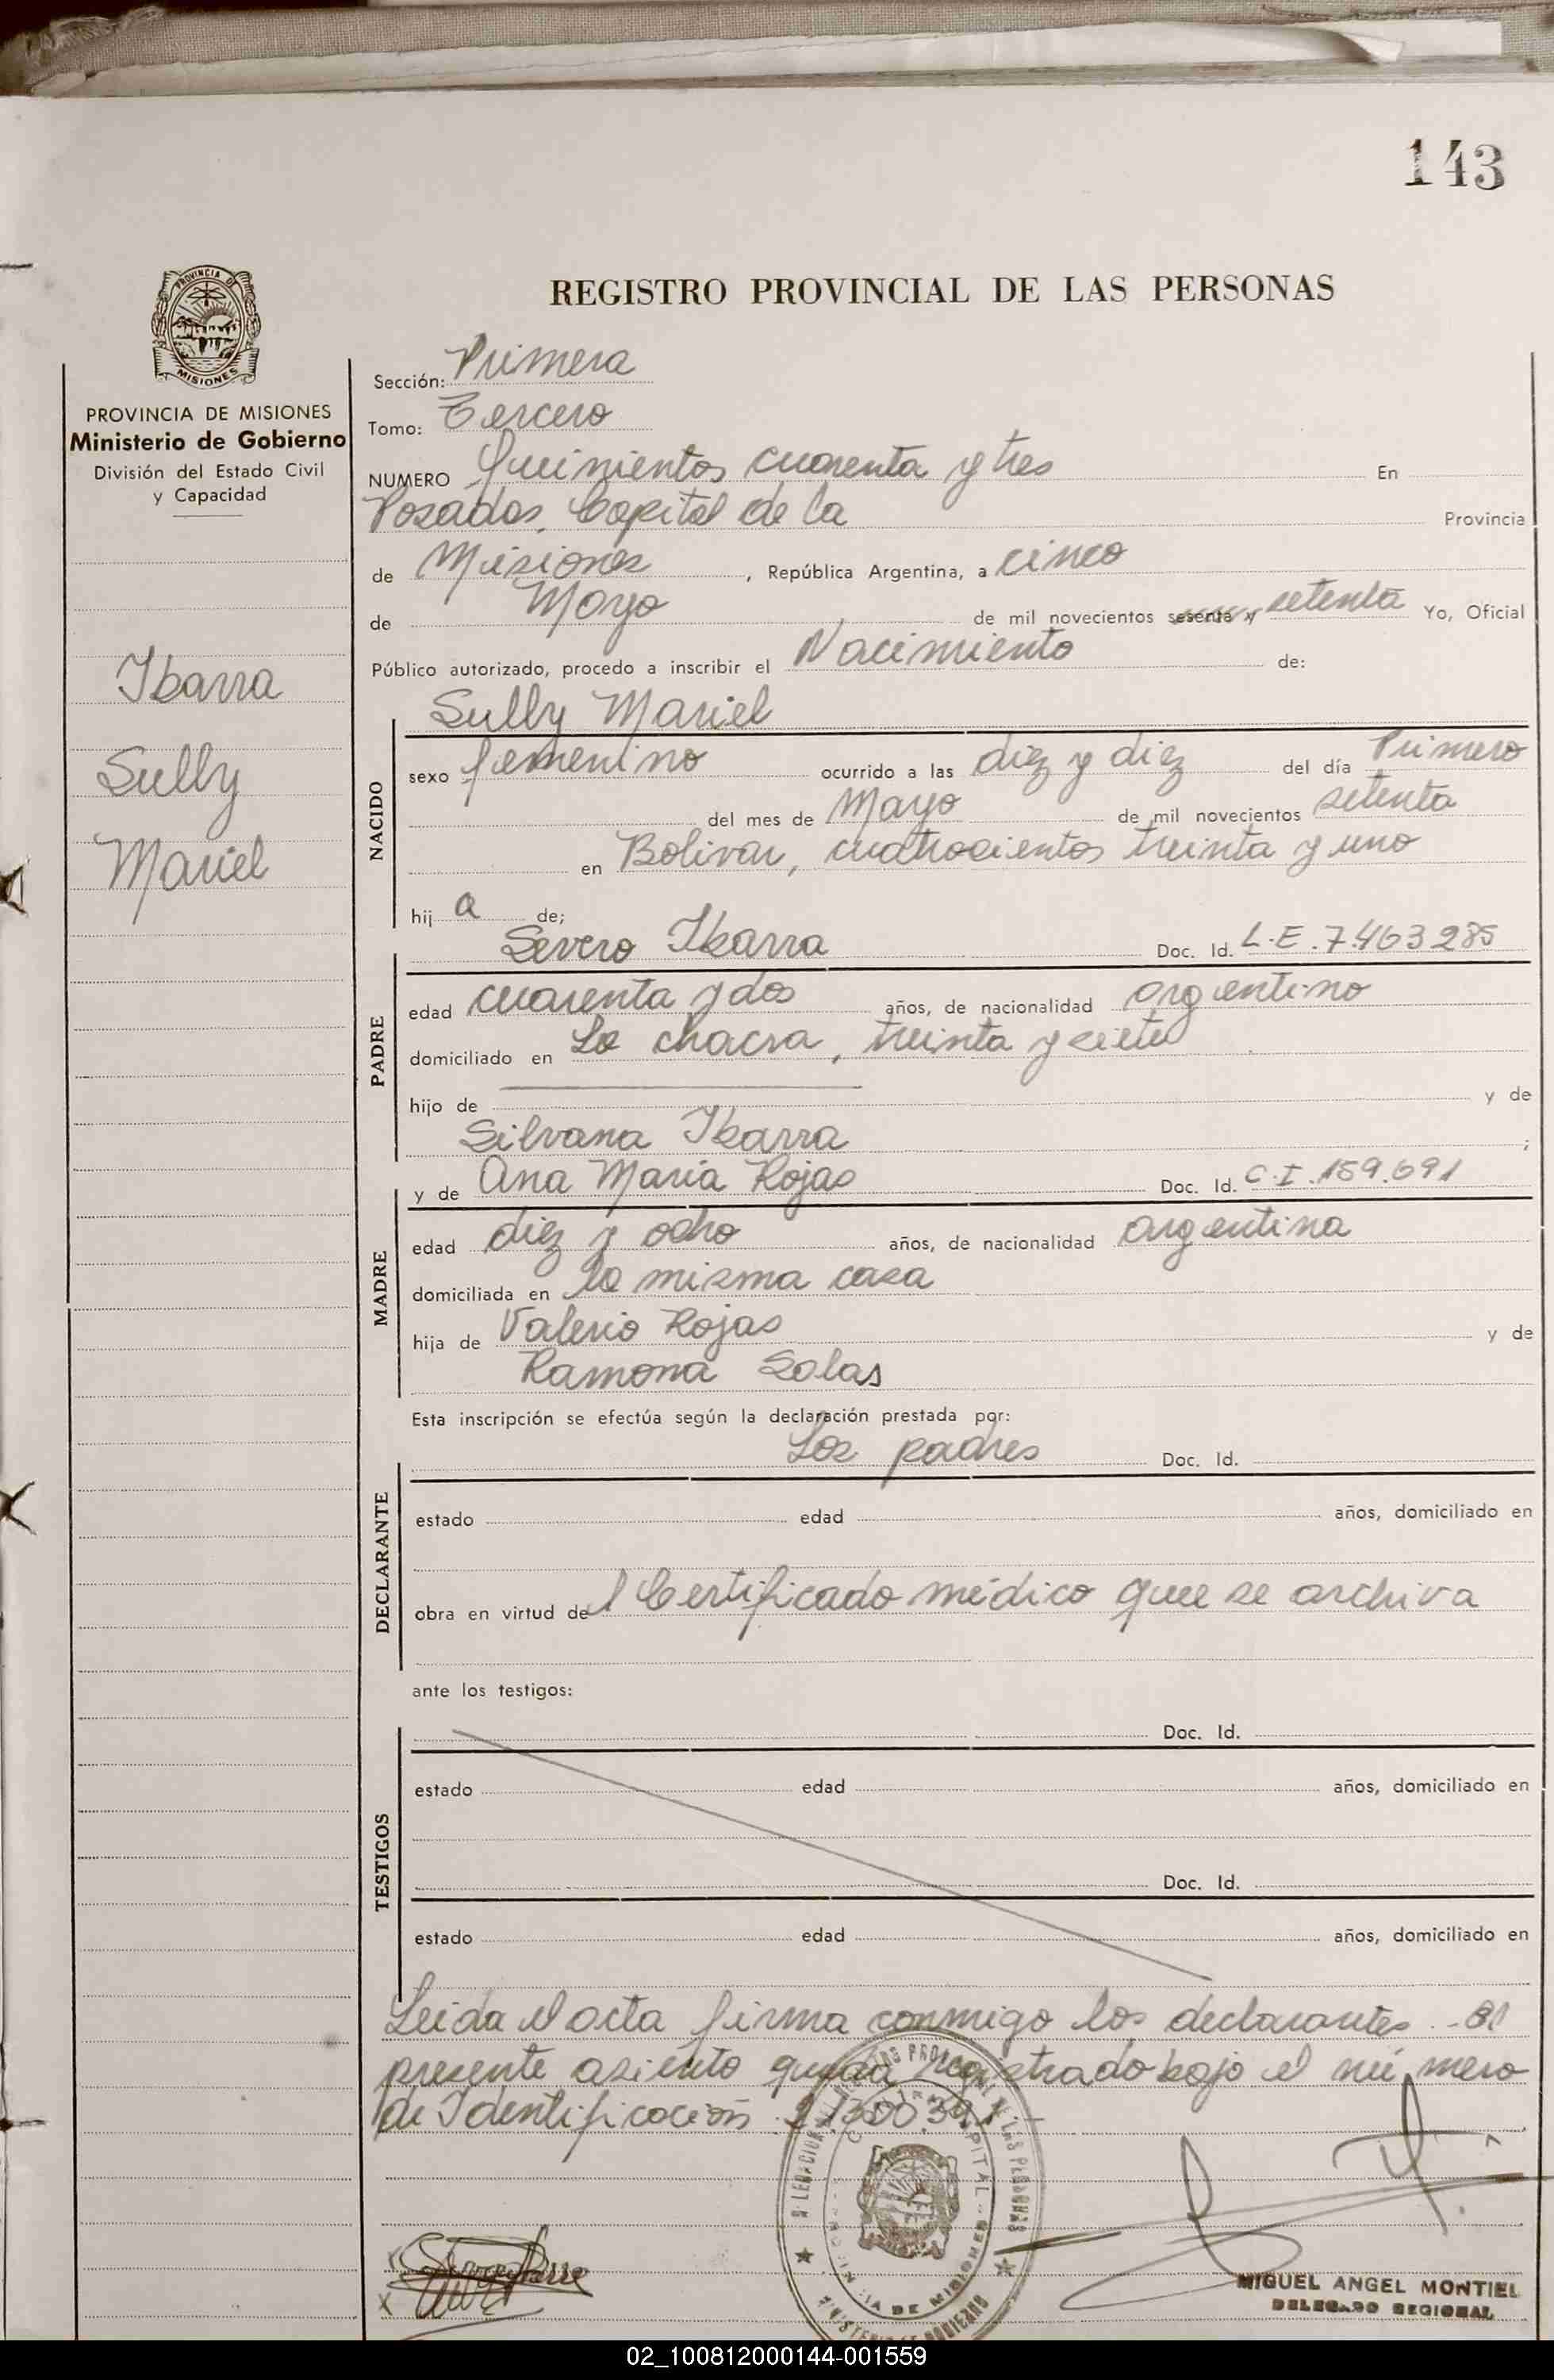 143
PROVINCIA DE
MISIONES
REGISTRO PROVINCIAL DE LAS PERSONAS
PROVINCIA DE MISIONES
Ministerio de Gobierno
División del Estado Civil
y Capacidad
Ibarra
Sully
Mariel
Sección: Primera
Tomo: Tercero
NUMERO Quinientos cuarenta y tres En
Posadas, Capital de la Provincia
de Misiones, República Argentina, a cinco
de Mayo de mil novecientos sesenta y setenta Yo, Oficial
Público autorizado, procedo a inscribir el Nacimiento de:
Sully Mariel
NACIDO
sexo femenino ocurrido a las diez y diez del día Primero
del mes de Mayo de mil novecientos setenta
en Bolivar, cuatrocientos treinta y uno
hij a de;
Severo Ibarra Doc. Id. L.E. 7.463285
PADRE
edad cuarenta y dos años, de nacionalidad argentino
domiciliado en La chacra, treinta y siete
hijo de y de
Silvana Ibarra ;
y de Ana María Rojas Doc. Id. C.I. 159.691
MADRE
edad diez y ocho años, de nacionalidad argentina
domiciliada en la misma casa
hija de Valerio Rojas y de
Ramona Solas
Esta inscripción se efectúa según la declaración prestada por:
Los padres Doc. Id.
DECLARANTE
estado edad años, domiciliado en
obra en virtud del Certificado médico que se archiva
ante los testigos:
Doc. Id.
TESTIGOS
estado edad años, domiciliado en
Doc. Id.
estado edad años, domiciliado en
Leida el acta firma conmigo los declarantes.- El
presente asiento queda registrado bajo el número
de Identificación
MIGUEL ANGEL MONTIEL
DELEGADO REGIONAL
02_100812000144-001559